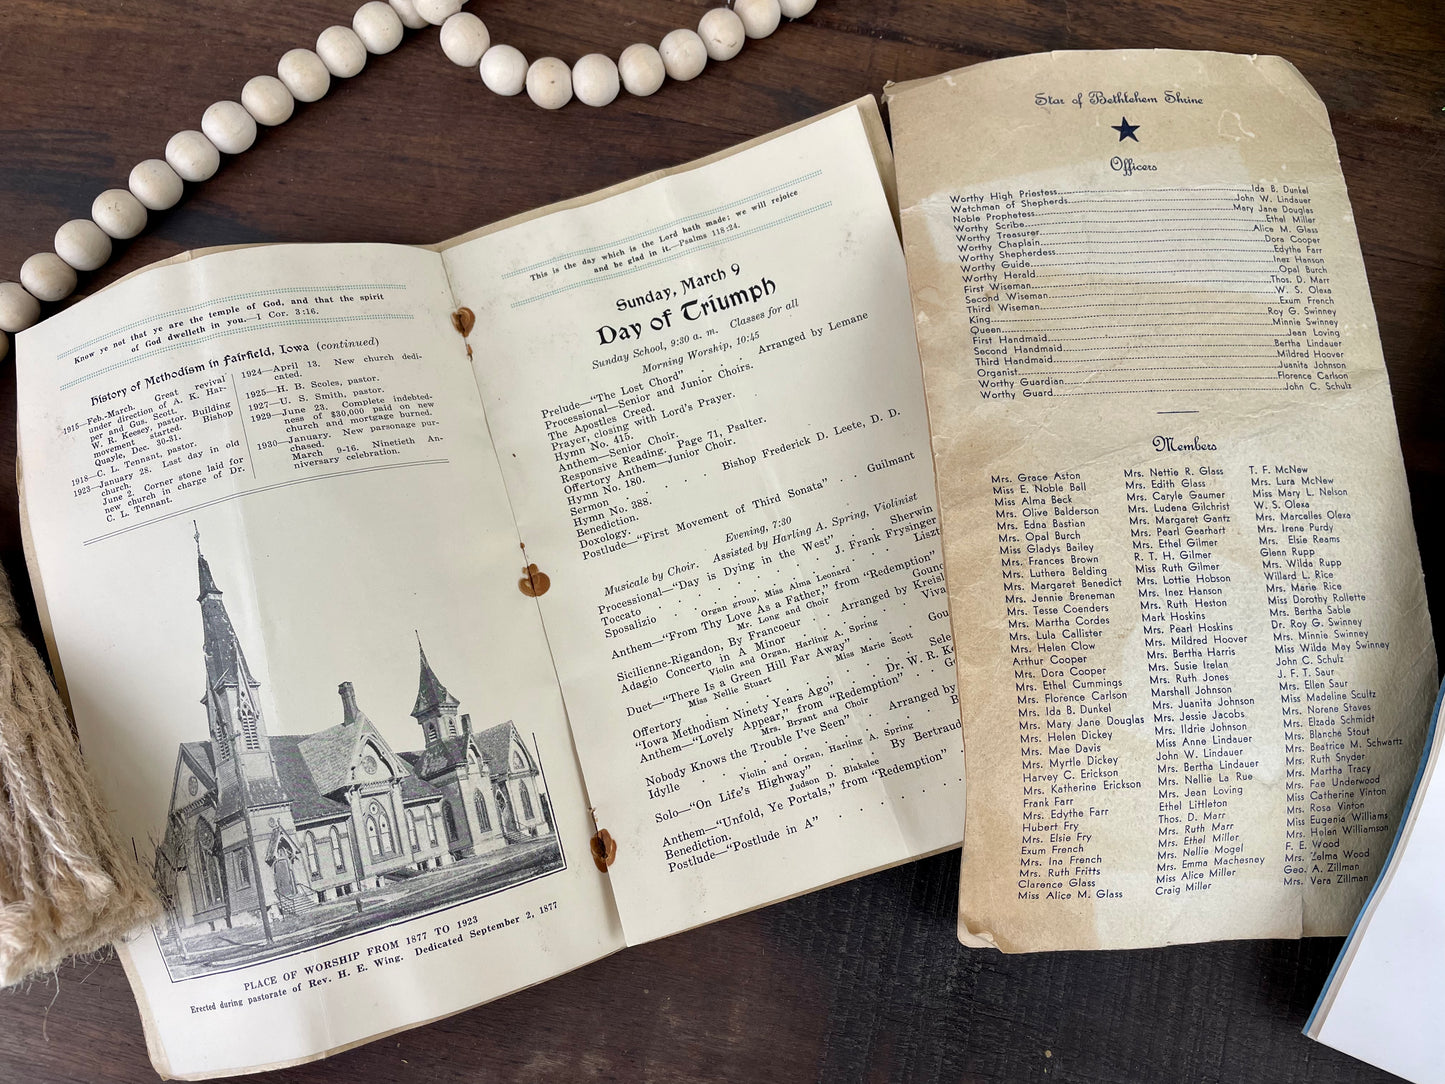 Know ye not that ye are the temple of God, and that the spirit
of God dwelleth in you.—I Cor. 3:16.
History of Methodism in Fairfield, Iowa (continued)
1915—Feb.-March. Great revival
under direction of A. K. Har-
per and Gus. Scott.
W. R. Keesey, pastor. Building
movement started. Bishop
Quayle, Dec. 30-31.
1918—C. L. Tennant, pastor.
1923—January 28. Last day in old
church.
June 2. Corner stone laid for
new church in charge of Dr.
C. L. Tennant.
1924—April 13. New church dedi-
cated.
1925—H. B. Scoles, pastor.
1927—U. S. Smith, pastor.
1929—June 23. Complete indebted-
ness of $30,000 paid on new
church and mortgage burned.
1930—January. New parsonage pur-
chased.
March 9-16. Ninetieth An-
niversary celebration.
PLACE OF WORSHIP FROM 1877 TO 1923
Erected during pastorate of Rev. H. E. Wing. Dedicated September 2, 1877
This is the day which is the Lord hath made; we will rejoice
and be glad in it.—Psalms 118:24.
Sunday, March 9
Day of Triumph
Sunday School, 9:30 a. m. Classes for all
Morning Worship, 10:45
Prelude—"The Lost Chord" . . Arranged by Lemare
Processional—Senior and Junior Choirs.
The Apostles Creed.
Prayer, closing with Lord's Prayer.
Hymn No. 415.
Anthem—Senior Choir.
Responsive Reading. Page 71, Psalter.
Offertory Anthem—Junior Choir.
Hymn No. 180.
Sermon . . . . Bishop Frederick D. Leete, D. D.
Hymn No. 388.
Benediction.
Doxology.
Postlude—"First Movement of Third Sonata" . . Guilmant
Evening, 7:30
Musicale by Choir. Assisted by Harling A. Spring, Violinist
Processional—"Day is Dying in the West" . . Sherwin
Toccato . . . . J. Frank Frysinger
Sposalizio . . . . Liszt
Organ group, Miss Alma Leonard
Anthem—"From Thy Love As a Father," from "Redemption"
Mr. Long and Choir
Sicilienne-Rigandon, By Francoeur . Arranged by
Adagio Concerto in A Minor
Violin and Organ, Harling A. Spring
Duet—"There Is a Green Hill Far Away"
Miss Nellie Stuart Miss Marie Scott
Offertory
"Iowa Methodism Ninety Years Ago" . . Dr. W. R.
Anthem—"Lovely Appear," from "Redemption"
Mrs. Bryant and Choir
Nobody Knows the Trouble I've Seen" . Arranged by
Idylle
Violin and Organ, Harling A. Spring
Solo—"On Life's Highway" . . By Bertraud
Judson D. Blakslee
Anthem—"Unfold, Ye Portals," from "Redemption"
Benediction.
Postlude—"Postlude in A"
Star of Bethlehem Shrine
Officers
Worthy High Priestess Ida B. Dunkel
Watchman of Shepherds John W. Lindauer
Noble Prophetess Mary Jane Douglas
Worthy Scribe Ethel Miller
Worthy Treasurer Alice M. Glass
Worthy Chaplain Dora Cooper
Worthy Shepherdess Edythe Farr
Worthy Guide Inez Hanson
Worthy Herald Opal Burch
First Wiseman Thos. D. Marr
Second Wiseman W. S. Olexa
Third Wiseman Exum French
King Roy G. Swinney
Queen Minnie Swinney
First Handmaid Jean Loving
Second Handmaid Bertha Lindauer
Third Handmaid Mildred Hoover
Organist Juanita Johnson
Worthy Guardian Florence Carlson
Worthy Guard John C. Schulz
Members
Mrs. Grace Aston
Miss E. Noble Ball
Miss Alma Beck
Mrs. Olive Balderson
Mrs. Edna Bastian
Mrs. Opal Burch
Miss Gladys Bailey
Mrs. Frances Brown
Mrs. Luthera Belding
Mrs. Margaret Benedict
Mrs. Jennie Breneman
Mrs. Tesse Coenders
Mrs. Martha Cordes
Mrs. Lula Callister
Mrs. Helen Clow
Arthur Cooper
Mrs. Dora Cooper
Mrs. Ethel Cummings
Mrs. Florence Carlson
Mrs. Ida B. Dunkel
Mrs. Mary Jane Douglas
Mrs. Helen Dickey
Mrs. Mae Davis
Mrs. Myrtle Dickey
Harvey C. Erickson
Mrs. Katherine Erickson
Frank Farr
Mrs. Edythe Farr
Hubert Fry
Mrs. Elsie Fry
Exum French
Mrs. Ina French
Mrs. Ruth Fritts
Clarence Glass
Miss Alice M. Glass
Mrs. Nettie R. Glass
Mrs. Edith Glass
Mrs. Caryle Gaumer
Mrs. Ludena Gilchrist
Mrs. Margaret Gantz
Mrs. Pearl Gearhart
Mrs. Ethel Gilmer
R. T. H. Gilmer
Miss Ruth Gilmer
Mrs. Lottie Hobson
Mrs. Inez Hanson
Mrs. Ruth Heston
Mark Hoskins
Mrs. Pearl Hoskins
Mrs. Mildred Hoover
Mrs. Bertha Harris
Mrs. Susie Irelan
Mrs. Ruth Jones
Marshall Johnson
Mrs. Juanita Johnson
Mrs. Jessie Jacobs
Mrs. Ildrie Johnson
Miss Anne Lindauer
John W. Lindauer
Mrs. Bertha Lindauer
Mrs. Nellie La Rue
Mrs. Jean Loving
Ethel Littleton
Thos. D. Marr
Mrs. Ruth Marr
Mrs. Ethel Miller
Mrs. Nellie Mogel
Mrs. Emma Machesney
Miss Alice Miller
Craig Miller
T. F. McNew
Mrs. Lura McNew
Miss Mary L. Nelson
W. S. Olexa
Mrs. Marcelles Olexa
Mrs. Irene Purdy
Mrs. Elsie Reams
Glenn Rupp
Mrs. Wilda Rupp
Willard L. Rice
Mrs. Marie Rice
Miss Dorothy Rollette
Mrs. Bertha Sable
Dr. Roy G. Swinney
Mrs. Minnie Swinney
Miss Wilda May Swinney
John C. Schulz
J. F. T. Saur
Mrs. Ellen Saur
Miss Madeline Scultz
Mrs. Norene Staves
Mrs. Elzada Schmidt
Mrs. Blanche Stout
Mrs. Beatrice M. Schwartz
Mrs. Ruth Snyder
Mrs. Martha Tracy
Mrs. Fae Underwood
Miss Catherine Vinton
Mrs. Rosa Vinton
Miss Eugenia Williams
Mrs. Helen Williamson
F. E. Wood
Mrs. Zelma Wood
Geo. A. Zillman
Mrs. Vera Zillman